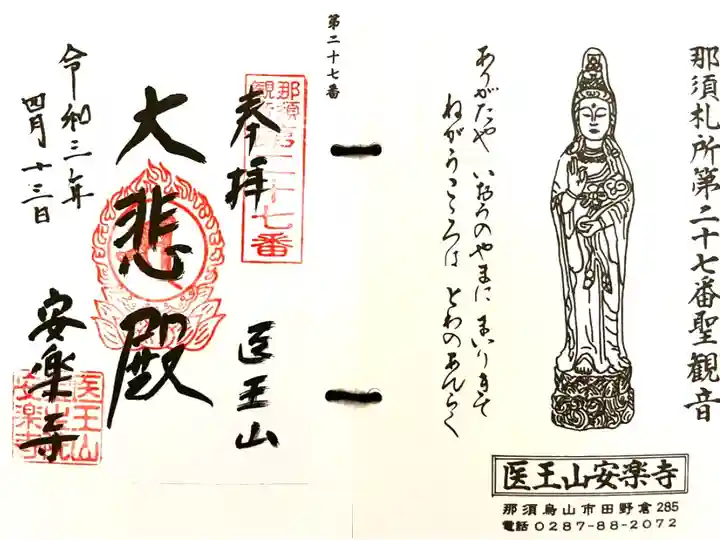 那須札所第二十七番聖観音
ありがたや いおうのやまに まいりきて
ねがうこころは とわのあんらく
医王山安楽寺
那須烏山市田野倉285
電話 0287-88-2072
第二十七番
那須
観音
第二十七番
奉拝
医王山
大悲殿
令和三年
四月十三日
安楽寺
医王山
安楽寺